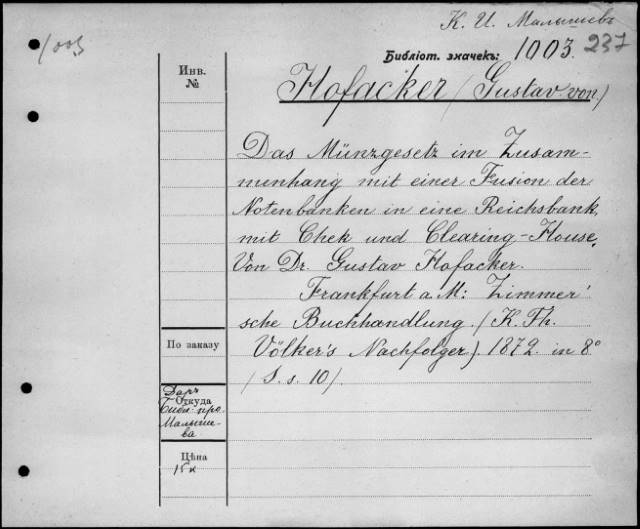 К. И. Малышевъ
1003
Библіот. значекъ: 1003. 237
Инв.
№
Hofacker (Gustav von)
Das Münzgesetz im Zusam-
menhang mit einer Fusion der
Notenbanken in eine Reichsbank,
mit Chek und Clearing-House,
Von Dr. Gustav Hofacker.
Frankfurt a. M: Zimmer'
sche Buchhandlung. (K. Th.
Völker's Nachfolger). 1872. in 8°
(S. s. 10).
По заказу
Даръ
Откуда
Библ: про.
Малыше-
ва
Цѣна
15 к